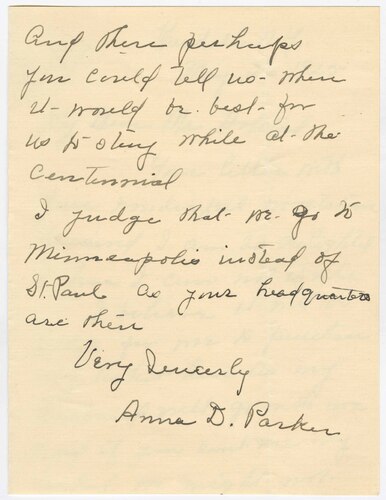 And then perhaps
you could tell us - when
it - would be best - for
us to stay while at - the
Centennial
I judge that - we go to
Minneapolis instead of
St. Paul as your headquarters
are there
Very Sincerly
Anna D. Parker